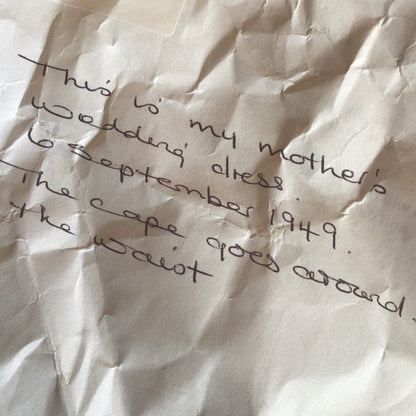 This is my mother's
wedding dress.
6 September 1949.
The cape goes around
the waist